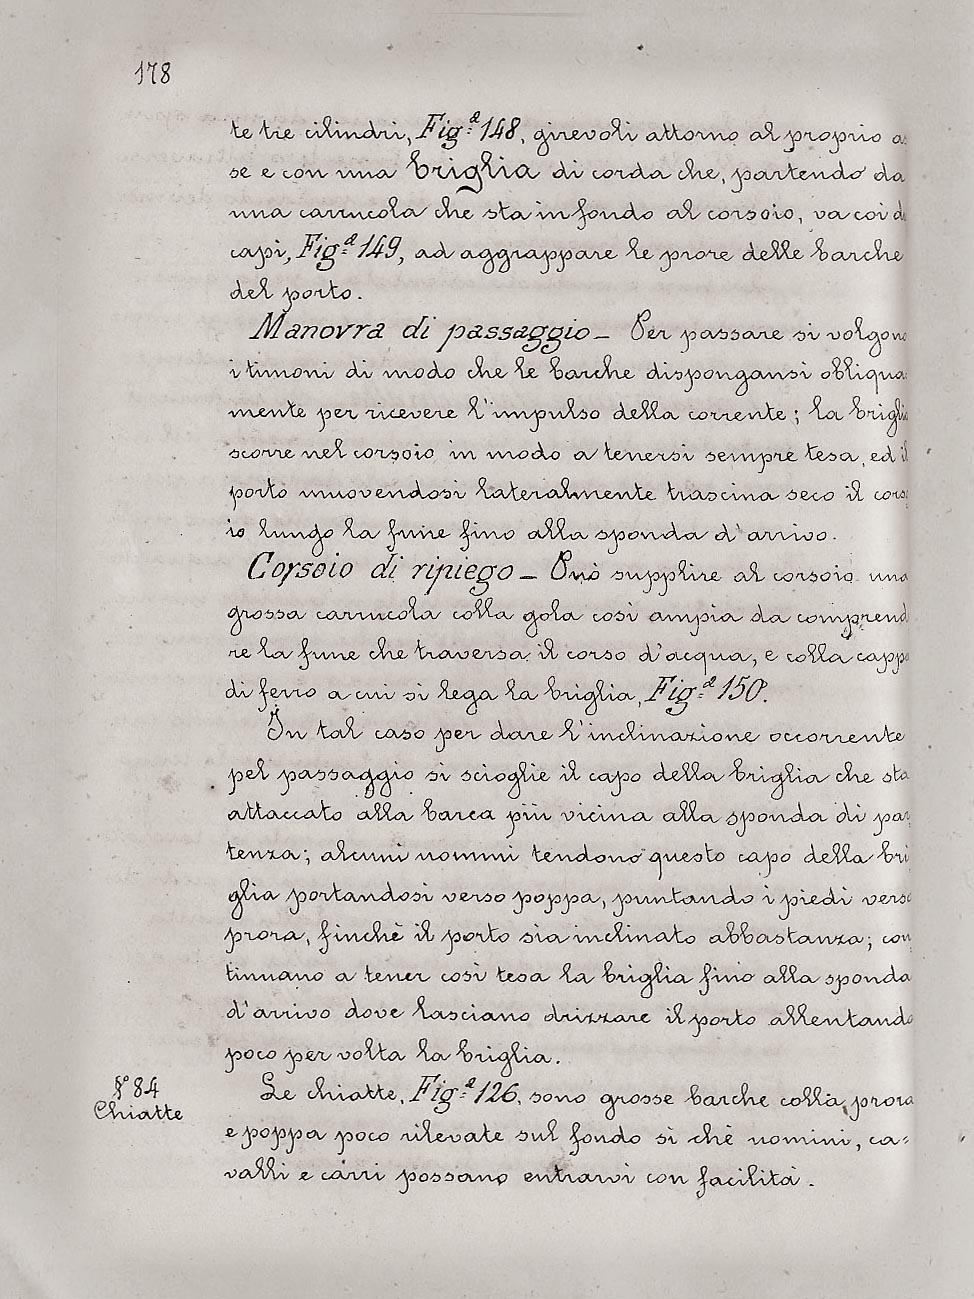 178
te tre cilindri, Fig.ª 148, girevoli attorno al proprio a
se e con una briglia di corda che, partendo da
una carrucola che sta in fondo al corsoio, va coi d
capi, Fig.ª 149, ad aggrappare le prore delle barche
del porto.
Manovra di passaggio – Per passare si volgono
i timoni di modo che le barche dispongansi obliqua
mente per ricevere l'impulso della corrente; la brigli
scorre nel corsoio in modo a tenersi sempre tesa, ed il
porto muovendosi lateralmente trascina seco il corso
io lungo la fune fino alla sponda d'arrivo.
Corsoio di ripiego – Può supplire al corsoio una
grossa carrucola colla gola così ampia da comprend
re la fune che traversa il corso d'acqua, e colla cappa
di ferro a cui si lega la briglia, Fig.ª 150.
In tal caso per dare l'inclinazione occorrente
pel passaggio si scioglie il capo della briglia che sta
attaccato alla barca più vicina alla sponda di par
tenza; alcuni uomini tendono questo capo della bri
glia portandosi verso poppa, puntando i piedi verso
prora, finchè il porto sia inclinato abbastanza; con
tinuano a tener così tesa la briglia fino alla sponda
d'arrivo dove lasciano drizzare il porto allentando
poco per volta la briglia.
§° 84
Chiatte
Le chiatte, Fig.ª 126, sono grosse barche colla prora
e poppa poco rilevate sul fondo sì chè uomini, ca-
valli e carri possano entrarvi con facilità.